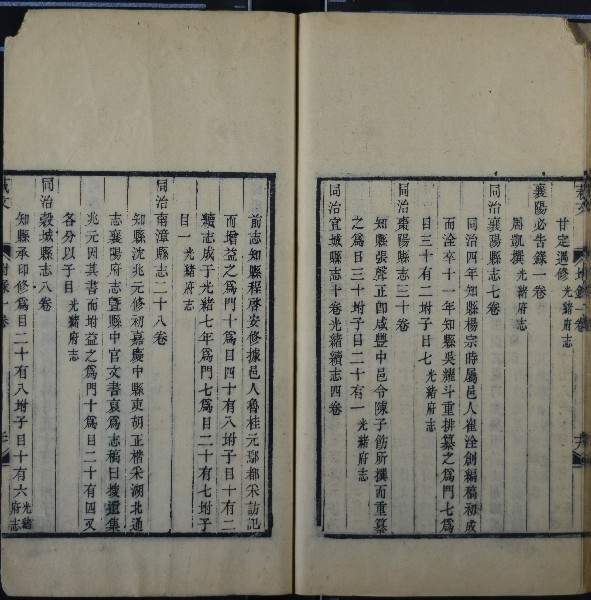 藝文 附錄一卷
甘定遇修光緒府志
襄陽必告錄一卷
周凱撰光緒府志
同治襄陽縣志七卷
同治四年知縣楊宗時屬邑人崔淦創編稿初成
而淦卒十一年知縣吳耀斗重排纂之為門七為
目三十有二坿子目七光緒府志
同治棗陽縣志三十卷
知縣張聲正卽咸豐中邑令陳子飭所撰而重纂
之為三十卷坿目二十有一光緒府志
同治宜城縣志十卷光緒續志四卷
前志知縣程啓安修據邑人魯桂元鄢都采訪記
而增益之為門十為目四十有八坿子目十有二
續志成于光緒七年為門七為目二十有七坿子
目一光緒府志
同治南漳縣志二十八卷
知縣沈兆元修初嘉慶中縣東胡正楷采湖北通
志襄陽府志曁縣中官文書裒為志稿曰摭遺集
兆元因其書而坿益之為門十為目二十有四又
各分以子目光緒府志
同治穀城縣志八卷
知縣承印修為目二十有八坿子目十有六光緒府志
藝文 附錄一卷